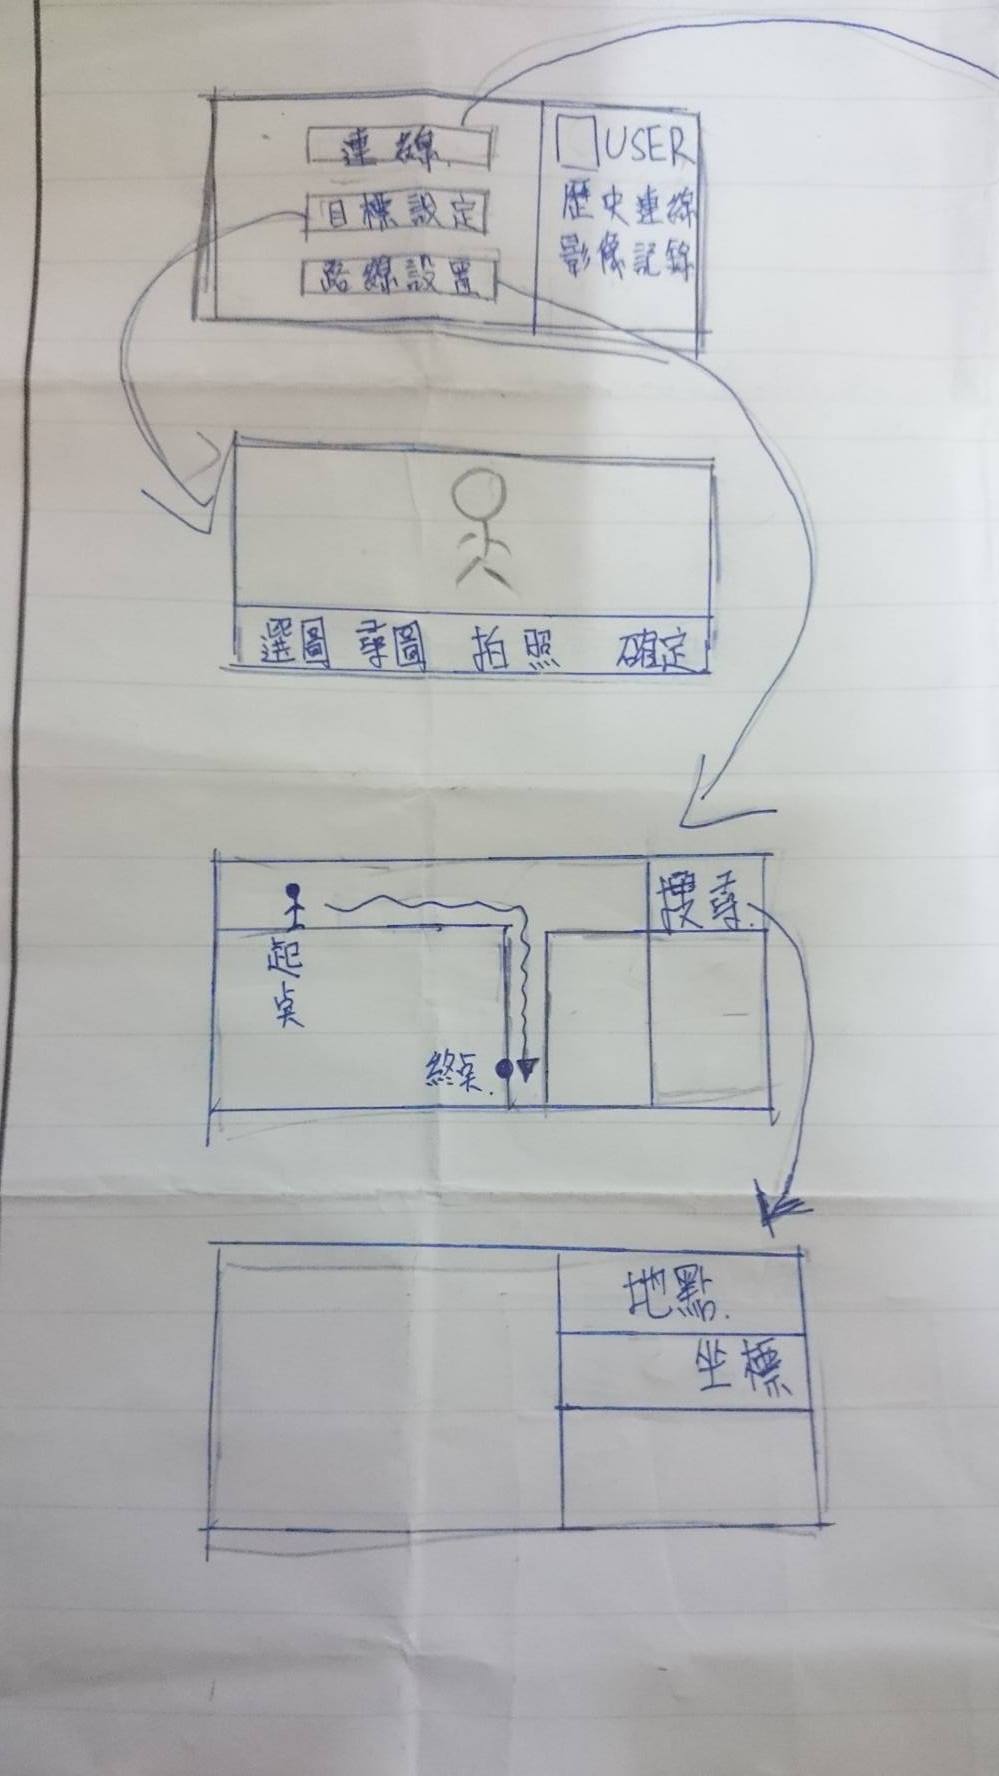 連線
目標設定
路線設置
USER
歷史連線
影像記錄
選圖 尋圖 拍照 確定
起點
終點.
搜尋.
地點.
坐標